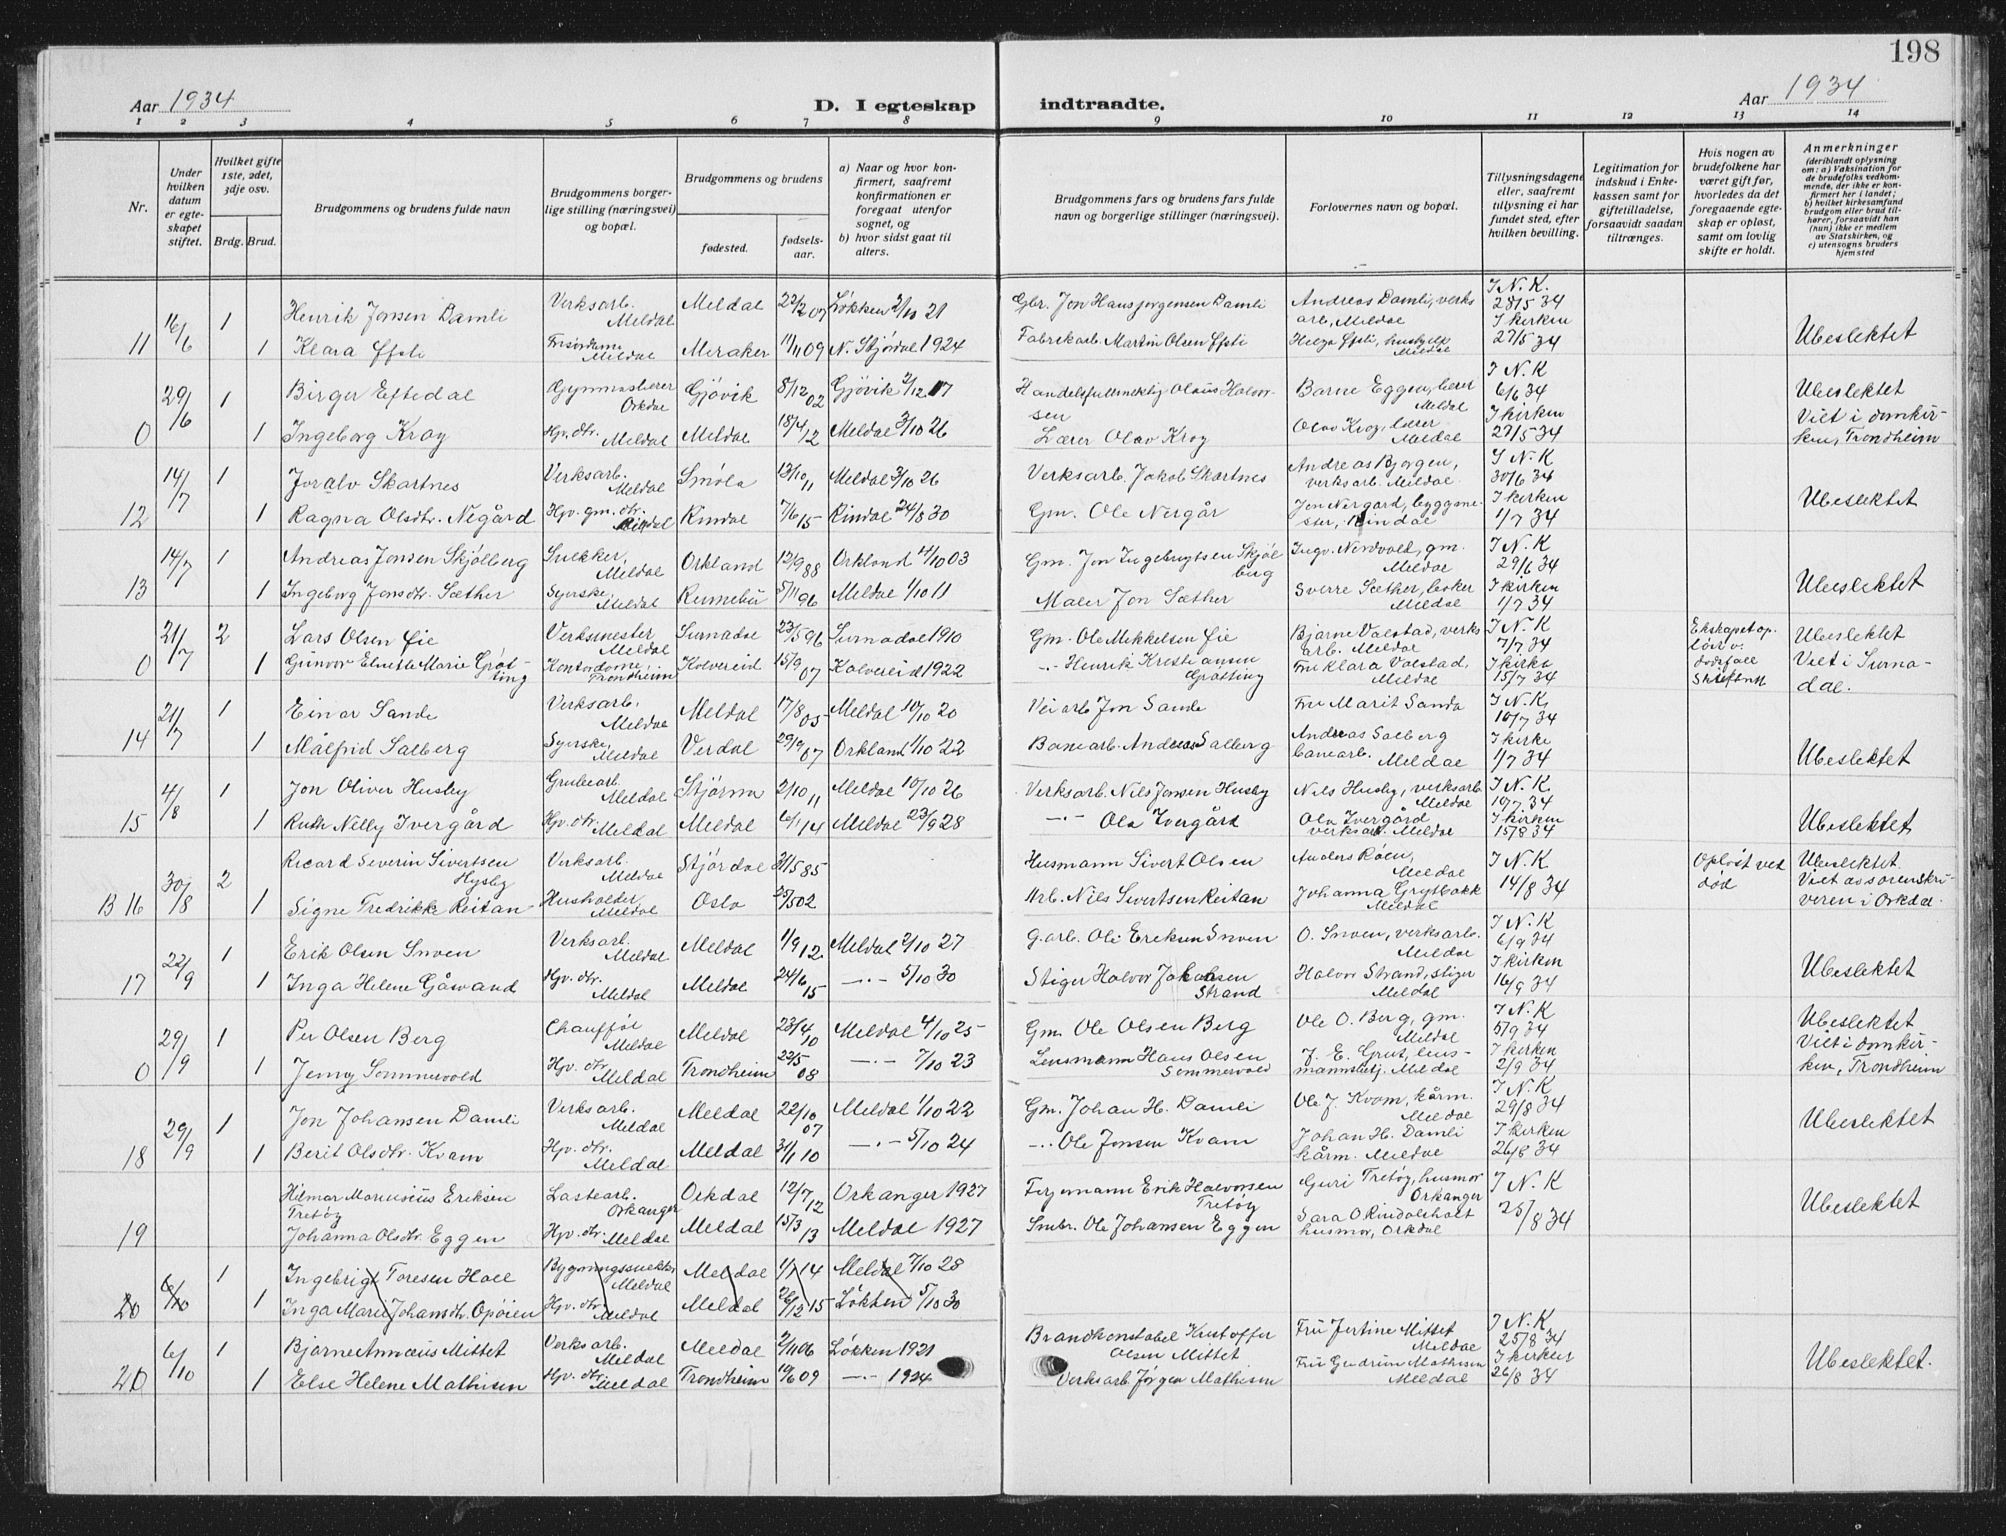 198
Aar 1934
D. I egteskap indtraadte.
Aar 1934
1 2 3 4 5 6 7 8 9 10 11 12 13 14
Nr.
Under hvilken datum er egteskapet stiftet.
Hvilket gifte 1ste, 2det, 3dje osv.
Brdg. Brud.
Brudgommens og brudens fulde navn
Brudgommens borgerlige stilling (næringsvei) og bopæl.
Brudgommens og brudens
fødested.
fødselsaar.
a) Naar og hvor konfirmert, saafremt konfirmationen er foregaat utenfor sognet, og
b) hvor sidst gaat til alters.
Brudgommens fars og brudens fars fulde navn og borgerlige stillinger (næringsvei).
Forlovernes navn og bopæl.
Tillysningsdagene eller, saafremt tillysning ei har fundet sted, efter hvilken bevilling.
Legitimation for indskud i Enkekassen samt for giftetilladelse, forsaavidt saadan tiltrænges.
Hvis nogen av brudefolkene har været gift før, hvorledes da det foregaaende egteskap er opløst, samt om lovlig skifte er holdt.
Anmerkninger (deriblandt oplysning om: a) Vaksination for de brudefolks vedkommende, der ikke er konfirmert her i landet; b) hvilket kirkesamfund brudgom eller brud tilhører, forsaavidt han (hun) ikke er medlem av Statskirken, og c) utensogns bruders hjemsted
11 16/6 1 Henrik Jonsen Damli Verksarb. Meldal Meldal 22/2 07 Løkken 2/10 21 Gbr. Jon Hansjørgensen Damli Andreas Damli, verksarb, Meldal I N. K. 28/5 34
1 Klara Efsti Meldal Meraker 11/11 09 N. Stjørdal 1924 Fabrikarb. Martin Olsen Efsti Helga Efsti, Meldal I kirken 27/5 34 Ubeslektet
0 29/6 1 Birger Eftedal Gymnaslærer Orkdal Gjøvik 8/12 02 Gjøvik 2/12 17 Handelsfullmektig Olaus Halvorsen Barne Eggen, lærer Meldal I N. K 6/6 34 Ubeslektet
1 Ingeborg Krog Hjv. dtr. Meldal Meldal 18/4 12 Meldal 3/10 26 Lærer Olav Krog Olav Krog, lærer Meldal I kirken 27/5 34 Viet i domkirken, Trondheim
12 14/7 1 Joralv Skartnes Verksarb. Meldal Smøla 13/10 11 Meldal 3/10 26 Verksarb. Jakob Skartnes Andreas Bjørgen, verksarb. Meldal I N. K 30/6 34
1 Ragna Olsdtr. Negård Hjv. gm. dtr. Rindal Rindal 7/6 15 Rindal 24/8 30 Gm. Ole Nergår Jon Nergard, byggmester, Rindal I kirken 1/7 34 Ubeslektet
13 14/7 1 Andreas Jonsen Skjølberg Snekker, Meldal Orkland 12/9 88 Orkland 4/10 03 Gm. Jon Ingebrigtsen Skjølberg Ingv. Nordvold, gm. Meldal I N. K 29/6 34
1 Ingeborg Jonsdtr. Sæther Syerske, Meldal Rennebu 5/11 96 Meldal 1/10 11 Maler Jon Sæther Sverre Sæther, baker Meldal I kirken 1/7 34 Ubeslektet
0 21/7 2 Lars Olsen Øie Verksmester Meldal Surnadal 23/5 96 Surnadal 1910 Gm. Ole Mikkelsen Øie Bjarne Valstad, verksarb. Meldal I N. K 7/7 34 Ekskapet opløst v. dødsfall Ubeslektet
1 Gunvor Elverte Marie Grøtting Kontordame Trondheim Kolvereid 15/9 07 Kolvereid 1922 -"- Henrik Kristiansen Grøtting Fru Klara Valstad, Meldal I kirke 15/7 34 Viet i Surnadal.
14 21/7 1 Einar Sande Verksarb. Meldal Meldal 17/8 05 Meldal 10/10 20 Veiarb Jon Sande Fru Marit Sande I N. K, 10/7 34
1 Målfrid Salberg Syerske, Meldal Verdal 29/9 07 Orkland 1/10 22 Banearb. Andreas Salberg Andreas Salberg banearb. Meldal I kirke 1/7 34 Ubeslektet
15 4/8 1 Jon Oliver Husby Grubearb. Meldal Stjørna 2/10 11 Meldal 10/10 26 Verksarb. Nils Jonsen Husby Nils Husby, verksarb. Meldal I N. K 10/7 34
1 Ruth Nelly Ivergård Hjv. dtr. Meldal Meldal 6/1 14 Meldal 23/9 28 -"- Ola Ivergård Ola Ivergård verksarb. Meldal I kirken 15/8 34 Ubeslektet
B 16 30/8 2 Ricard Severin Sivertsen Hysby Verksarb. Meldal Stjørdal 31/5 85 Husmann Sivert Olsen Anders Røen, Meldal I N. K 14/8 34 Opløst ved død Ubeslektet
1 Signe Fredrikke Reitan Husholder, Meldal Oslo 25/5 02 Arb. Nils Sivertsen Reitan Johanna Grytbakk Meldal Viet av sorenskriveren i Orkdal.
17 22/9 1 Erik Olsen Snoen Verksarb. Meldal Meldal 1/9 12 Meldal 2/10 27 G.arb. Ole Eriksen Snoen O. Snoen, verksarb. Meldal I N. K 6/9 34
1 Inga Helene Gåsvand Hjv. dtr. Meldal Meldal 24/6 15 -"- 5/10 30 Stiger Halvor Johansen Strand Halvor Strand, stiger Meldal I kirken 16/9 34 Ubeslektet
0 29/9 1 Per Olsen Berg Chauffør Meldal Meldal 23/4 10 Meldal 4/10 25 Gm. Ole Olsen Berg Ole O. Berg, gm. Meldal I N. K 5/9 34 Ubeslektet
1 Jenny Sommervold Hjv. dtr. Meldal Trondheim 22/5 08 -"- 7/10 23 Lensmann Hans Olsen Sommervold J. E. Grut, lensmannsbetj. Meldal I kirken 2/9 34 Viet i domkirken, Trondheim
18 29/9 1 Jon Johansen Damli Verksarb. Meldal Meldal 22/10 07 Meldal 1/10 22 Gm. Johan H. Damli Ole J. Kvam, kårm. Meldal I N. K 29/8 34
1 Berit Olsdtr. Kvam Hjv. dtr. Meldal Meldal 31/1 10 -"- 5/10 24 -"- Ole Jonsen Kvam Johan H. Damli kårm. Meldal I kirken 26/8 34 Ubeslektet
19 Hilmar Marensius Eriksen Tretøy Lastearb. Orkanger Orkdal 12/7 12 Orkanger 1927 Ferjemann Erik Halvorsen Tretøy Guri Tretøy, husmor Orkanger I N. K 25/8 34 Ubeslektet
Johanna Olsdtr. Eggen Hjv. dtr. Meldal Meldal 15/3 13 Meldal 1927 Smbr. Ole Johansen Eggen Sara O Rindalsholt husmor, Orkdal
20 6/10 1 Ingebrigt Toresen Hoel Bygningssnekker Meldal Meldal 1/1 14 Meldal 7/10 28
1 Inga Marie Johansdtr. Opøien Hjv. dtr. Meldal Meldal 26/12 15 Løkken 5/10 30
20 6/10 1 Bjarne Annæus Mittet Verksarb. Meldal Meldal 2/11 06 Løkken 1921 Brandkonstabel Kristoffer Olsen Mittet Fru Jertine Mittet Meldal I N. K 25/8 34
1 Else Helene Mathisen Hjv. dtr. Meldal Trondheim 19/6 09 -"- 1924 Verksarb. Jørgen Mathisen Fru Gudrun Mathisen Meldal I kirken 26/8 34 Ubeslektet.